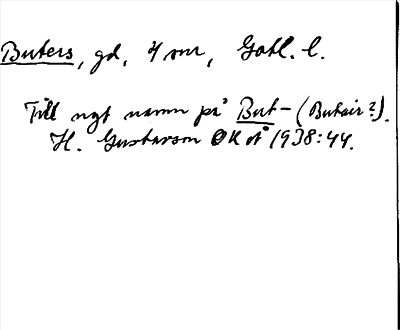 Buters, gd, 4 snr, Gotl. l.
Till ngt namn på But- (Butair?).
H. Gustavson OK å 1938:44.